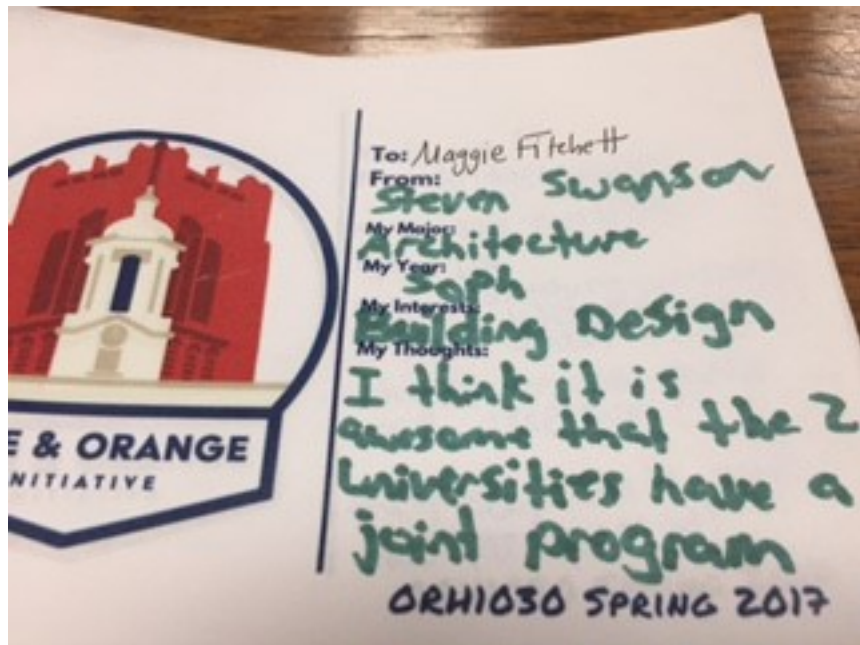 E & ORANGE
NITIATIVE
To: Maggie Fitchett
From:
Steven Swanson
My Major:
Architecture
My Year:
Soph
My Interests:
Building Design
My Thoughts:
I think it is
awesome that the 2
universities have a
joint program
ORH1030 SPRING 2017